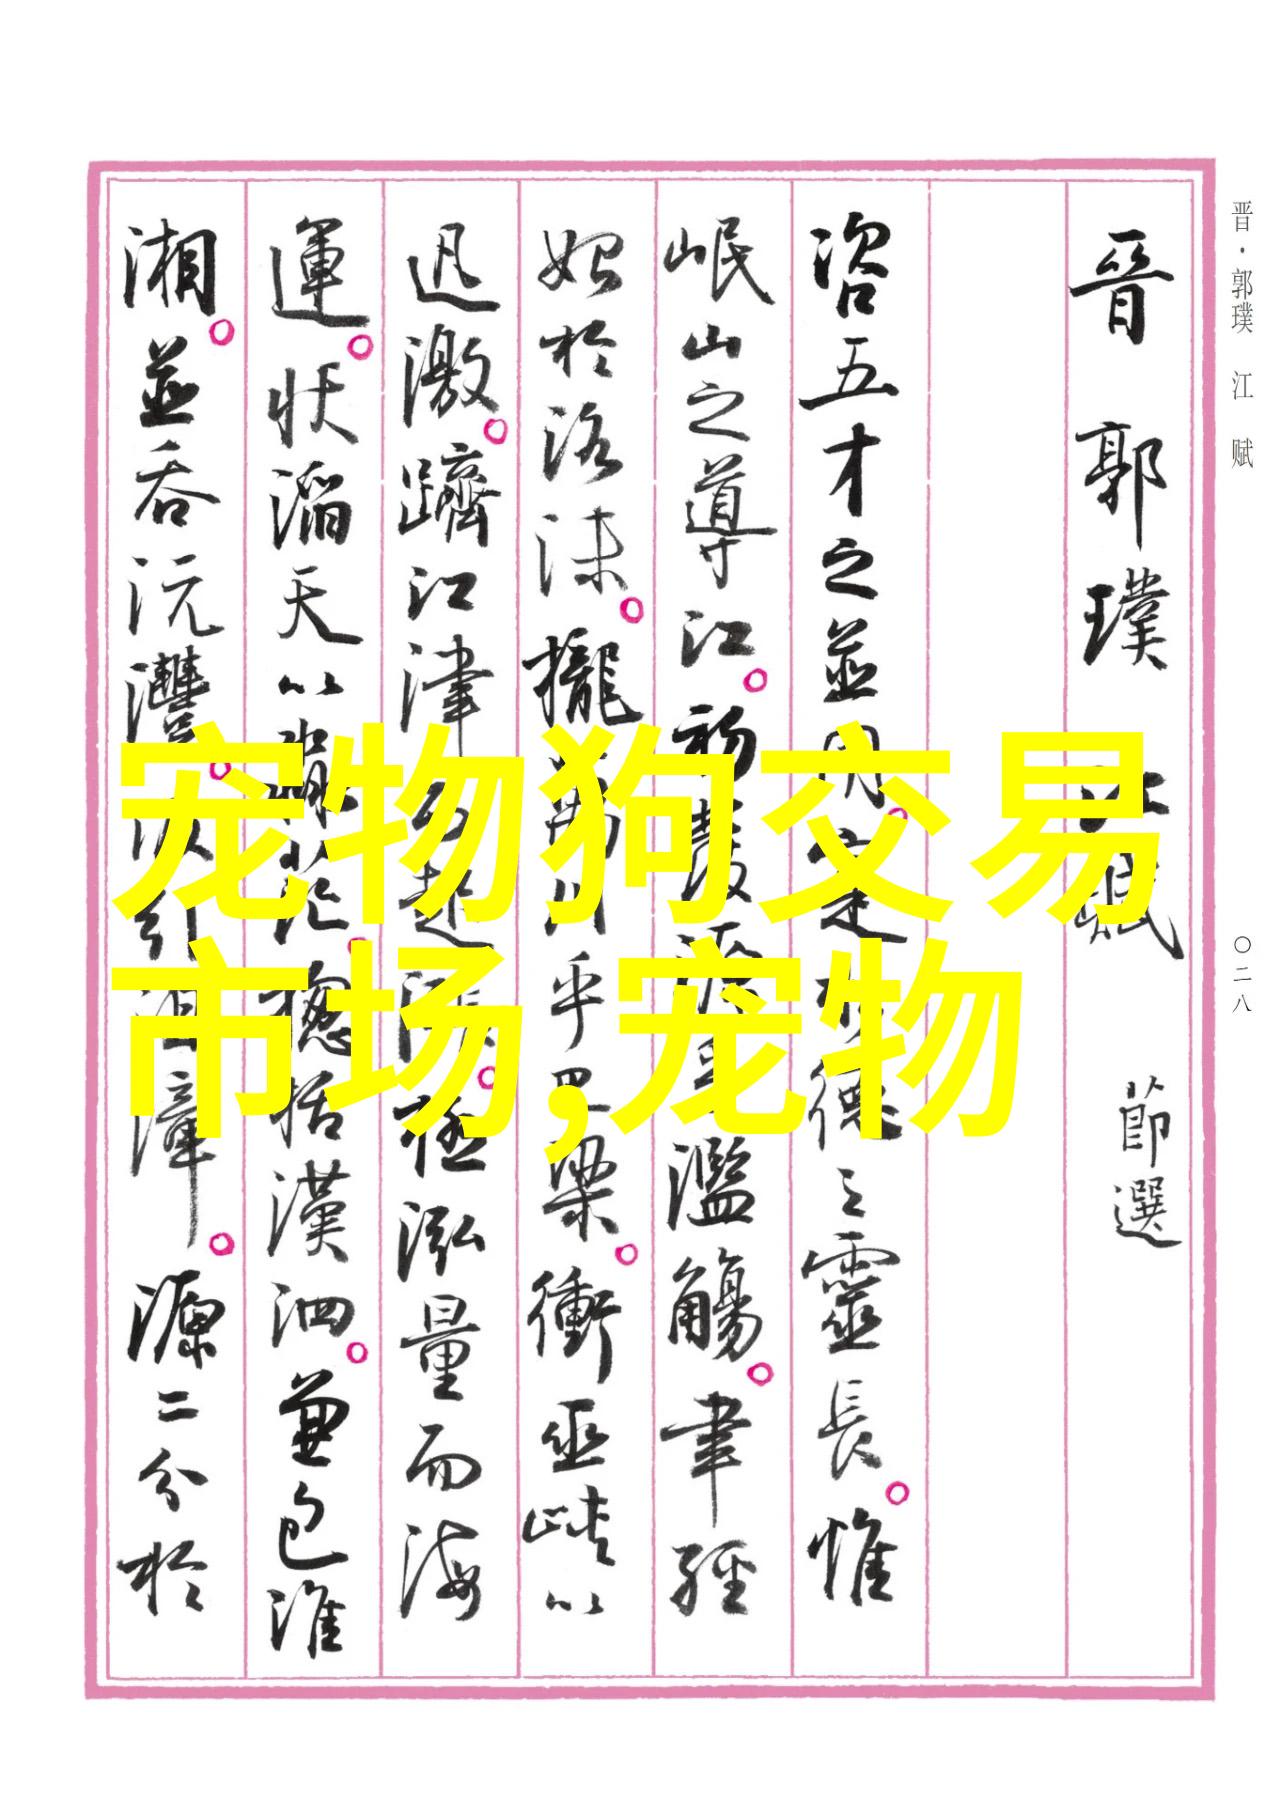 晋·郭璞 江 赋
〇二八
晉 郭璞 江賦 節選
咨五才之並用。寔水德之靈長。惟
岷山之導江。初發源乎濫觴。聿經
始於洛沬。攏萬川乎巴梁。衝巫峽以
迅激。躋江津而起漲。極泓量而海
運。狀滔天以淼茫。總括漢泗。兼包淮
湘。並吞沅灃。汲引沮漳。源二分於
宠物狗交易
市场,宠物